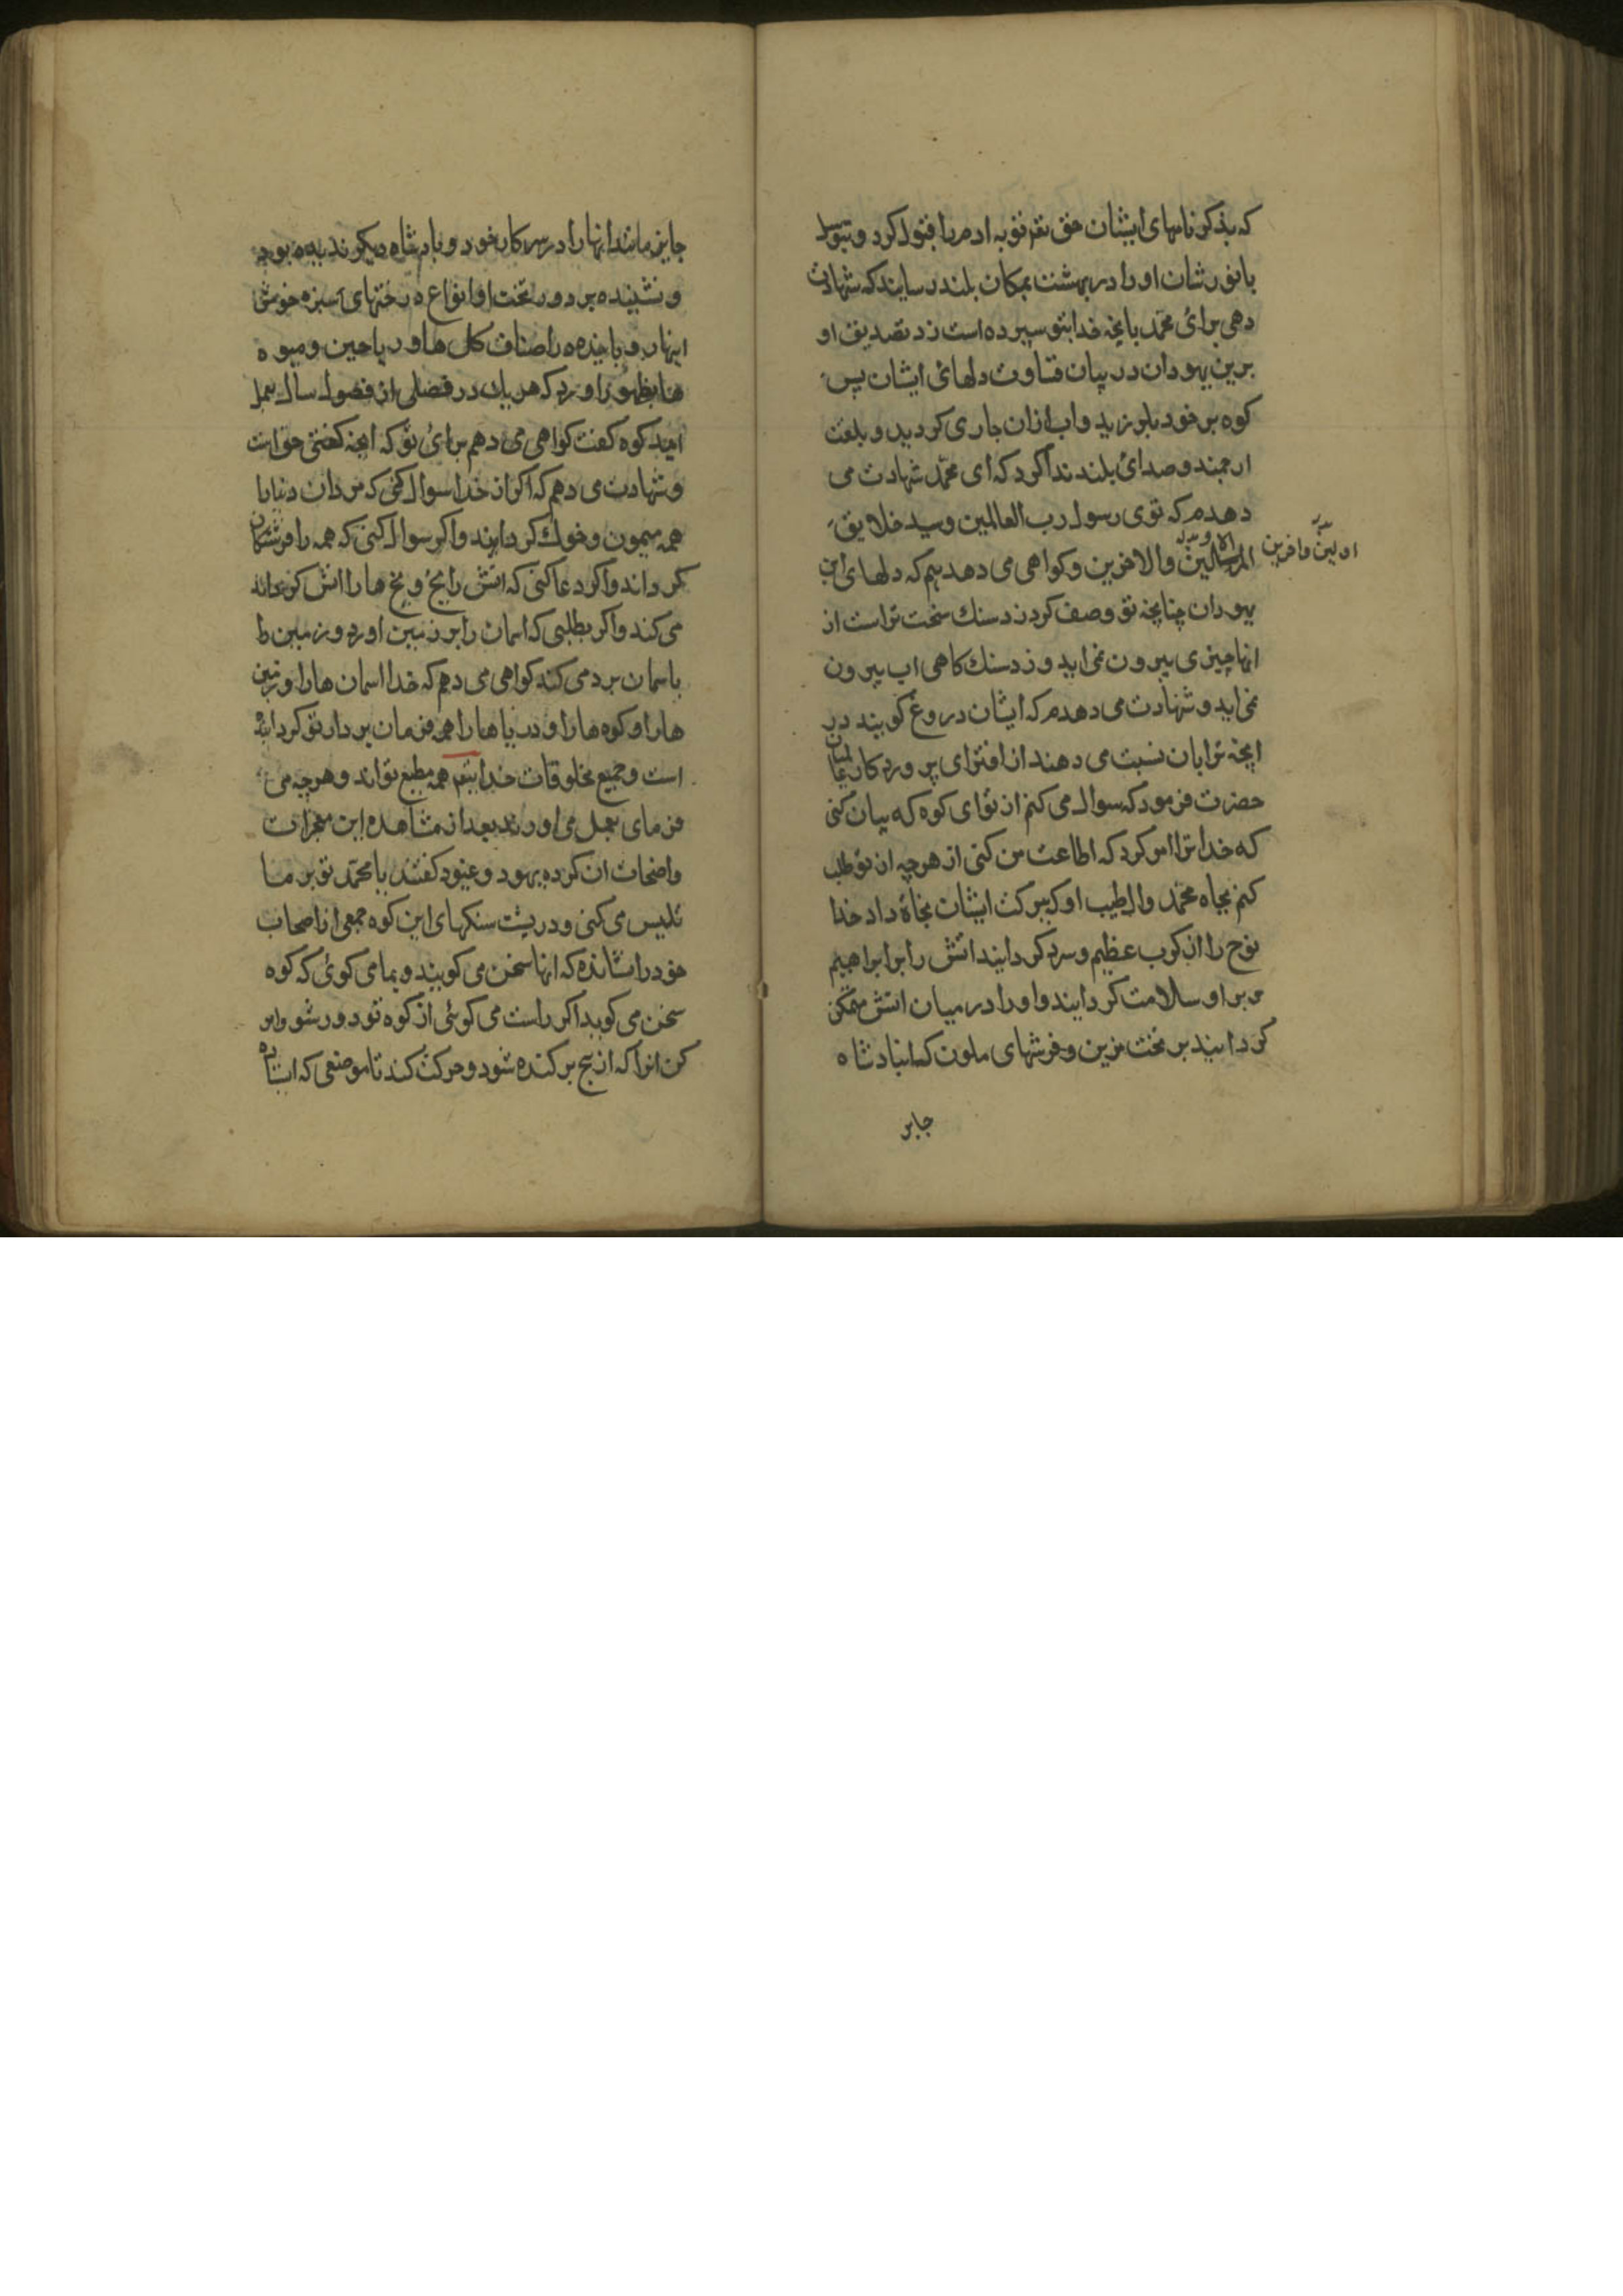 که بذکر نامهای ایشان حق تعم توبه ادم را قبول کرد و بتوسل
بانورشان او را در بهشت بمکان بلند رسایند که شهادت
دهی برای محمد بانچه خدا بتو سپرده است زد تصدیق او
برین یهودان در بیان قساوت دلهای ایشان پس
کوه بر خود بلرزید و اب ازان جاری کردید و بلغت
ارجمند و صدای بلند ندا کرد که ای محمد شهادت می
دهدم که توی رسول رب العالمین و سید خلایق
المرسلین والاخرین و کواهی می دهدیم که دلهای این
اولین و اخرین
یهودان چنانچه تو وصف کردن دسنك سخت تراست از
انها چیزی بیرون نمی اید و زدسنك کاهی اب بیرون
نمی اید و شهادت می دهدم که ایشان دروغ کویند در
انچه ترا بان نسبت می دهند از افترای پروردکار عالمیان
حضرت فرمود که سوال می کنم از تو ای کوه که بیان کنی
که خدا ترا امر کرد که اطاعت من کنی از هرچه از تو طلب
کنم بجاه محمد وال طیب او که ببرکت ایشان نجاة داد خدا
نوح را از کرب عظیم و سرد کردایند اتش را بر ابراهیم
و بر او سلامت کردایند و او را در میان اتش متمکن
کردایند بر تخت مزین و فرشهای ملون که انبادشاه
جابر
جابر مانند انها را در سرکار خود و بادشاه دیکر ندیده بود
و نشینده بر دور تخت او انواع درختهای سبزه خوش
انهار و باخنده را صناف کل ها و ریاحین و میوه
ها بظهور اورد که هر یك در فصلی از فصول سال بعمل
اید کوه کفت کواهی می دهم برای تو که انچه کفتی حق است
و شهادت می دهم که اکر از خدا سوال کنی که مردان دنیا را
همه میمون و خوك کرداند و اکر سوال کنی که همه را فرشتکان
کرداند و اکر دعا کنی که اتش را یخ و یخ ها را اتش کرداند
می کند و اکر بطلبی که اسمان را بر زمین اورد و زمین را
باسمان برد می کند کواهی می دهم که خدا اسمان ها را و زمین
ها را و کوه ها را و دریاها را همه فرمان بردار تو کردانیده
است و جمیع مخلوقات خدا بتعم همه مطیع تو اند و هرچه می
فرمای بعمل می اورند بعد از مشاهده این معجزات
واضحات ان کرده یهود و عنود کفتند یا محمد تو بر ما
تلبیس می کنی و در پشت سنکهای این کوه جمعی از اصحاب
خود را نشانده که انها سخن می کویند و بما می کوئی که کوه
سخن می کوید اکر راست می کوئی از کوه تو دور شو و امر
کن انرا که از بیخ برکنده شود و حرکت کند تا موضعی که استاده